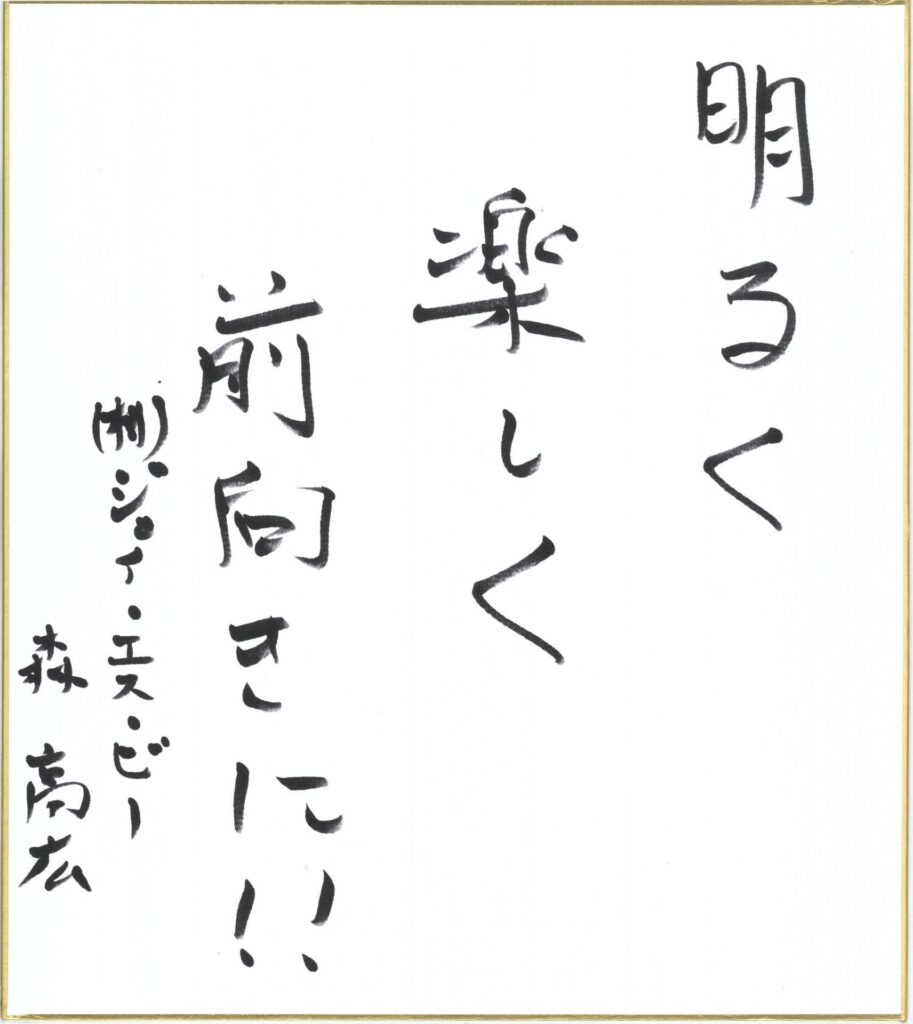 明るく
楽しく
前向きに!!
(株)ジェイ・エス・ビー
森 高広